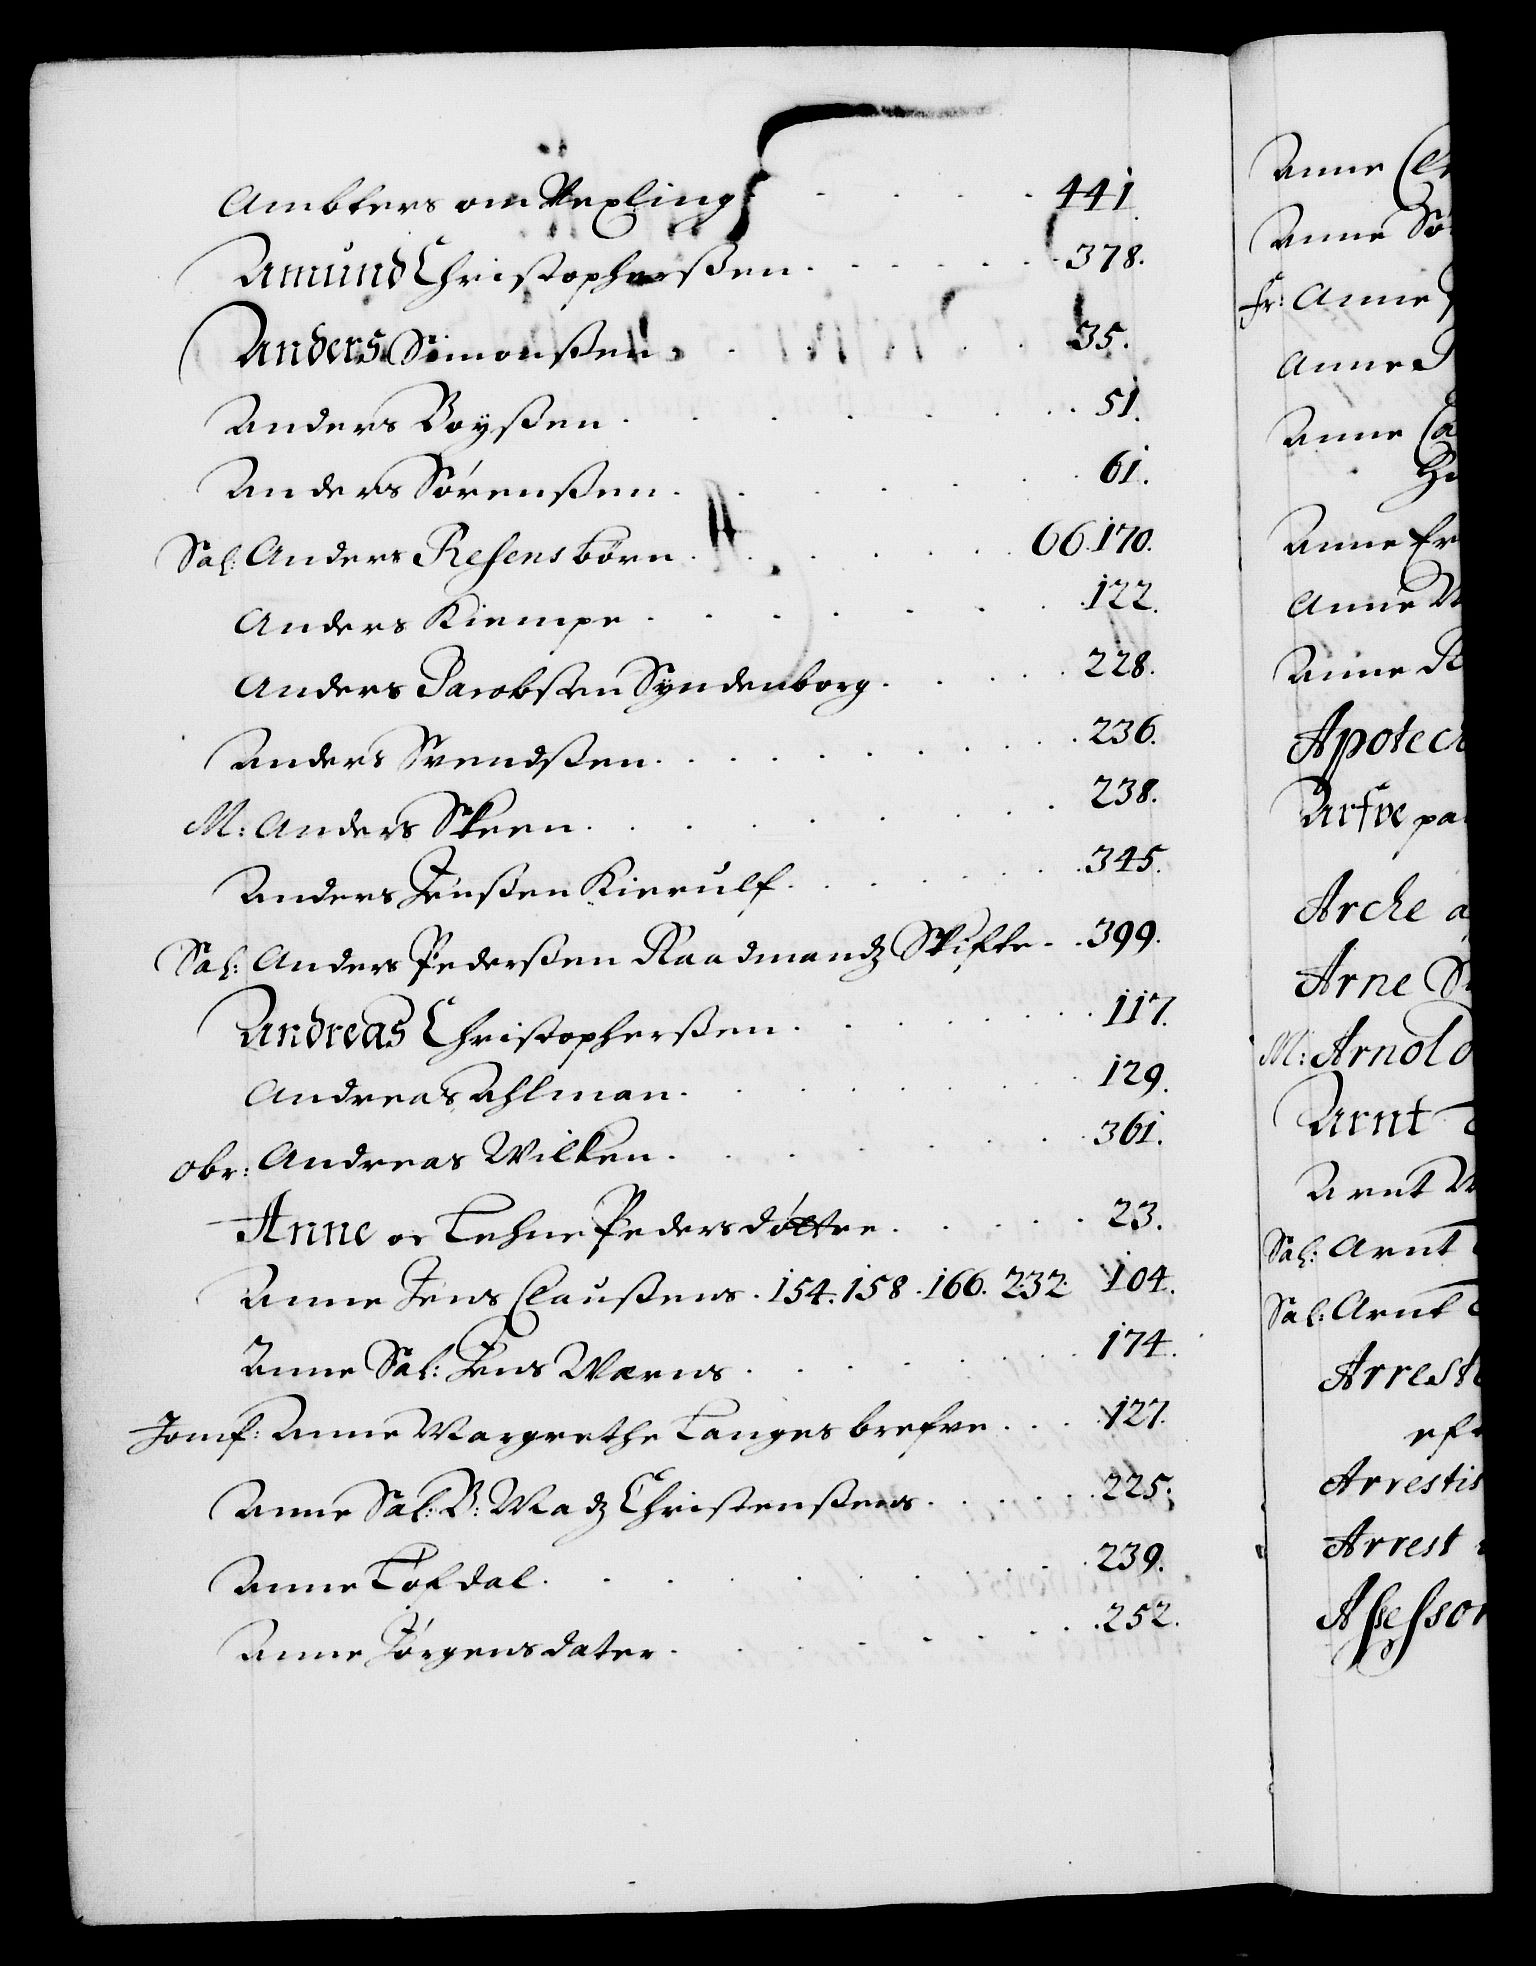 Ambters om Vexling . . . . . 441.
Amund Christophersßen . . . . . . 378.
Anders Simonßen . . . . . 35.
Anders Boyßen . . . . . . . 51.
Anders Sörenßen . . . . . . 61.
Sal: Anders Resens börn . . . . . . 66. 170.
Anders Kiempe . . . . . . . 122.
Anders Jacobsen Syndenborg . . . . 228.
Anders Svendßen . . . . . . . . 236.
M: Anders Skeen . . . . . . 238.
Anders Jenßen Kierulf . . . . . . 345.
Sal: Anders Pederßen Raadmandz Skifte . . 399.
Andreas Christopherßen . . . . . . 117.
Andreas Ahlman . . . . . . . 129.
Obr: Andreas Wilken . . . . . . . 361.
Anne oc Lehne Pedersdöttre . . . . . 23.
Anne Jens Claußens . 154. 158. 166. 232. 104.
Anne Sal: Jens Worms . . . . . . 174.
Jomf: Anne Margrethe Langes brefve . . . . 127.
Anne Sal: B: Madz Christenßens . . . . . 225.
Anne Löfdal . . . . . . . . . 239.
Anne Jörgensdater . . . . . . . . . 252.
Anne
Anne Sö
Fr: Anne
Anne
Anne Ca
Anne Er
Anne
Anne
Apotec
Arfve pa
Arche a
Arne
M: Arnold
Arnt
Arnt
Sal: Arnt
Sal: Arnt
Arrest
eft
Arrestis
Arrest
Assessor